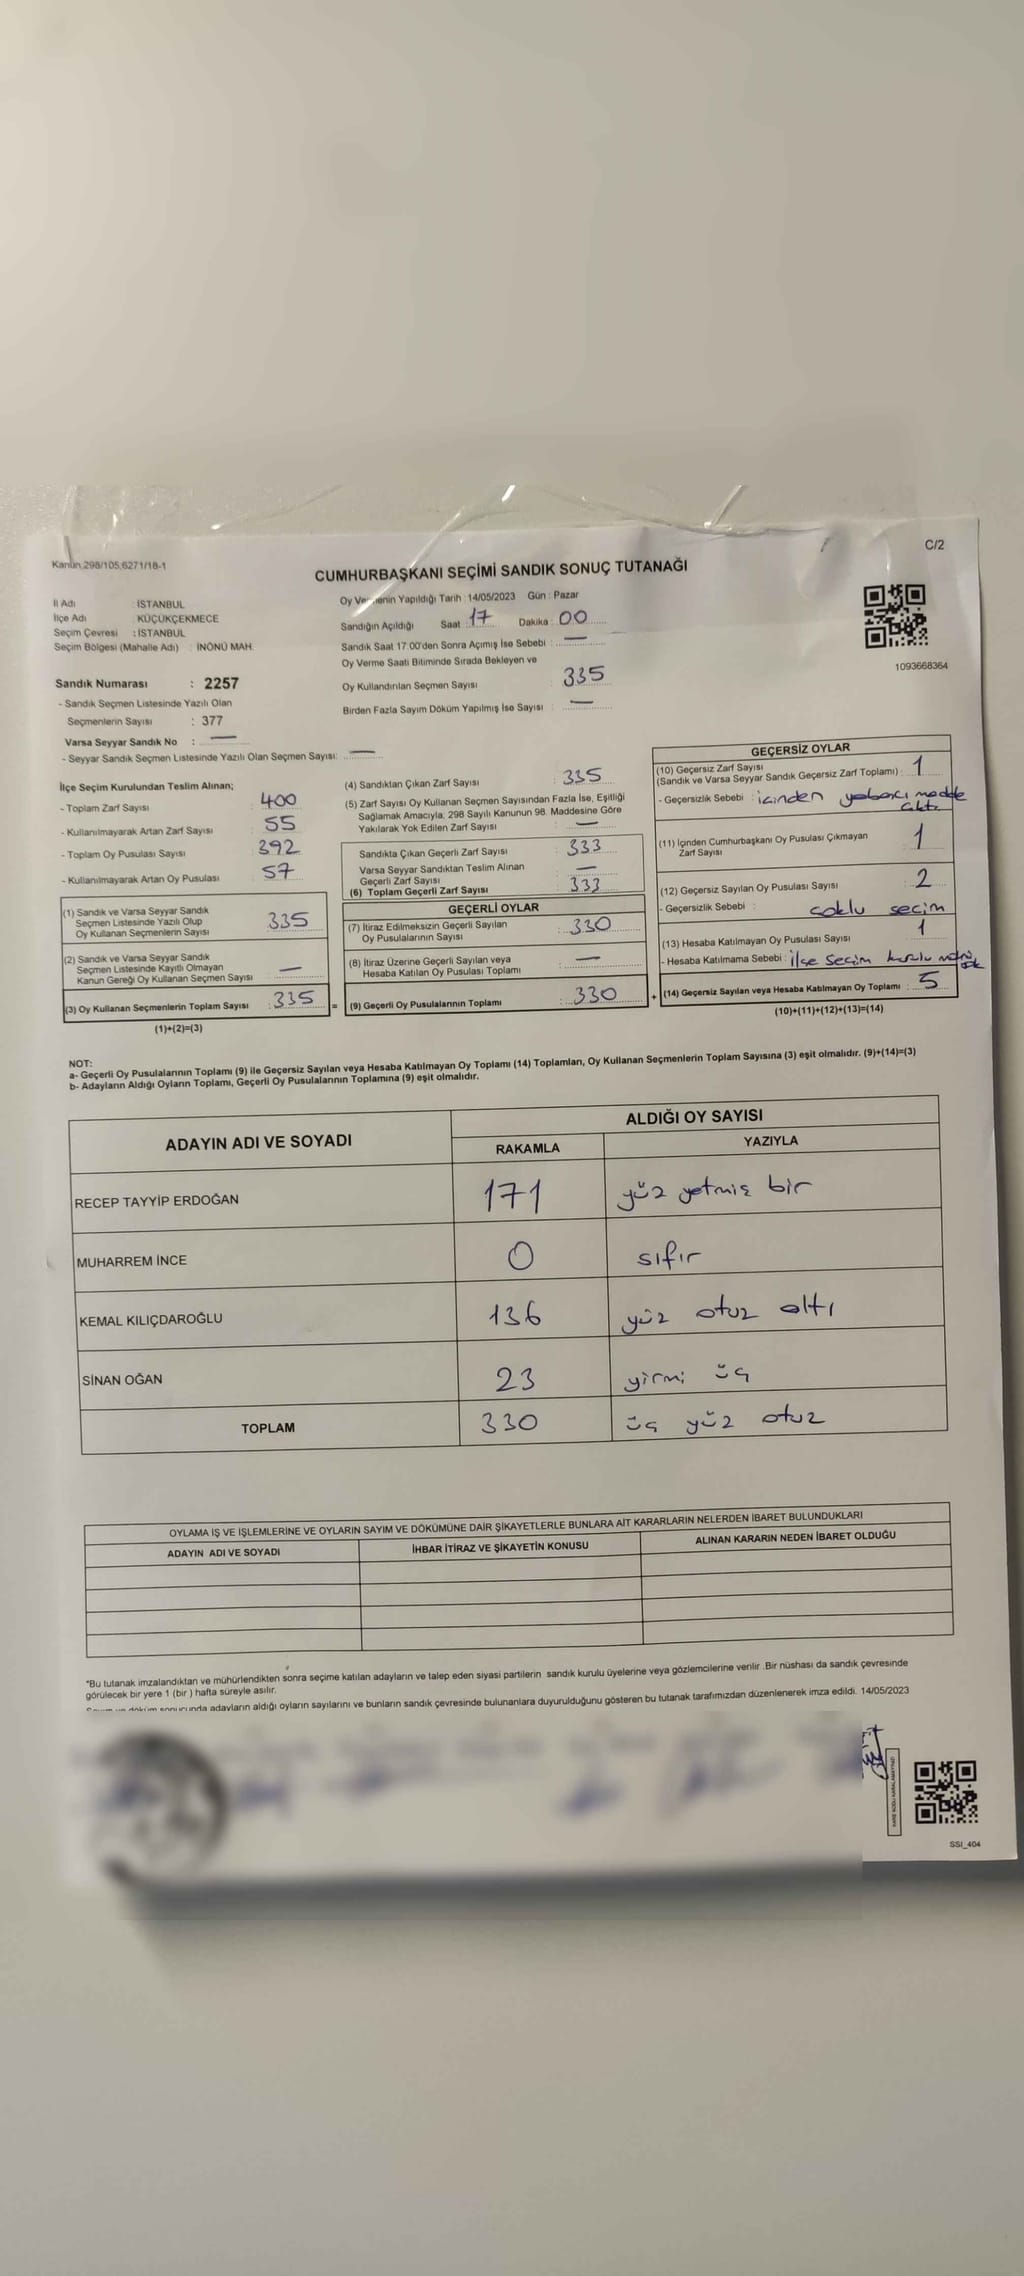 C/2
Kanun.298/105,6271/18-1
CUMHURBAŞKANI SEÇİMİ SANDIK SONUÇ TUTANAĞI
İl Adı : İSTANBUL
İlçe Adı : KÜÇÜKÇEKMECE
Seçim Çevresi : İSTANBUL
Seçim Bölgesi (Mahalle Adı) : İNÖNÜ MAH.
Sandık Numarası : 2257
- Sandık Seçmen Listesinde Yazılı Olan
Seçmenlerin Sayısı : 377
Varsa Seyyar Sandık No :
- Seyyar Sandık Seçmen Listesinde Yazılı Olan Seçmen Sayısı:
Oy Vermenin Yapıldığı Tarih : 14/05/2023 Gün : Pazar
Sandığın Açıldığı Saat : 17 Dakika : 00
Sandık Saat 17.00'den Sonra Açımış İse Sebebi :
Oy Verme Saati Bitiminde Sırada Bekleyen ve
Oy Kullandırılan Seçmen Sayısı : 335
Birden Fazla Sayım Döküm Yapılmış İse Sayısı :
1093668364
İlçe Seçim Kurulundan Teslim Alınan;
- Toplam Zarf Sayısı : 400
- Kullanılmayarak Artan Zarf Sayısı : 55
- Toplam Oy Pusulası Sayısı : 392
- Kullanılmayarak Artan Oy Pusulası : 57
(1) Sandık ve Varsa Seyyar Sandık
Seçmen Listesinde Yazılı Olup
Oy Kullanan Seçmenlerin Sayısı : 335
(2) Sandık ve Varsa Seyyar Sandık
Seçmen Listesinde Kayıtlı Olmayan
Kanun Gereği Oy Kullanan Seçmen Sayısı :
(3) Oy Kullanan Seçmenlerin Toplam Sayısı : 335 =
(1)+(2)=(3)
(4) Sandıktan Çıkan Zarf Sayısı : 335
(5) Zarf Sayısı Oy Kullanan Seçmen Sayısından Fazla İse, Eşitliği
Sağlamak Amacıyla, 298 Sayılı Kanunun 98. Maddesine Göre
Yakılarak Yok Edilen Zarf Sayısı :
Sandıkta Çıkan Geçerli Zarf Sayısı : 333
Varsa Seyyar Sandıktan Teslim Alınan
Geçerli Zarf Sayısı :
(6) Toplam Geçerli Zarf Sayısı : 333
GEÇERLİ OYLAR
(7) İtiraz Edilmeksizin Geçerli Sayılan
Oy Pusulalarının Sayısı : 330
(8) İtiraz Üzerine Geçerli Sayılan veya
Hesaba Katılan Oy Pusulası Toplamı :
(9) Geçerli Oy Pusulalarının Toplamı : 330 +
GEÇERSİZ OYLAR
(10) Geçersiz Zarf Sayısı
(Sandık ve Varsa Seyyar Sandık Geçersiz Zarf Toplamı) : 1
- Geçersizlik Sebebi : içinden yabancı madde
çıktı
(11) İçinden Cumhurbaşkanı Oy Pusulası Çıkmayan
Zarf Sayısı : 1
(12) Geçersiz Sayılan Oy Pusulası Sayısı : 2
- Geçersizlik Sebebi : çoklu seçim
(13) Hesaba Katılmayan Oy Pusulası Sayısı : 1
- Hesaba Katılmama Sebebi : ilçe seçim kurulu
(14) Geçersiz Sayılan veya Hesaba Katılmayan Oy Toplamı : 5
(10)+(11)+(12)+(13)=(14)
NOT:
a- Geçerli Oy Pusulalarının Toplamı (9) ile Geçersiz Sayılan veya Hesaba Katılmayan Oy Toplamı (14) Toplamları, Oy Kullanan Seçmenlerin Toplam Sayısına (3) eşit olmalıdır. (9)+(14)=(3)
b- Adayların Aldığı Oyların Toplamı, Geçerli Oy Pusulalarının Toplamına (9) eşit olmalıdır.
ADAYIN ADI VE SOYADI ALDIĞI OY SAYISI
RAKAMLA YAZIYLA
RECEP TAYYİP ERDOĞAN 171 yüz yetmiş bir
MUHARREM İNCE 0 sıfır
KEMAL KILIÇDAROĞLU 136 yüz otuz altı
SİNAN OĞAN 23 yirmi üç
TOPLAM 330 üç yüz otuz
OYLAMA İŞ VE İŞLEMLERİNE VE OYLARIN SAYIM VE DÖKÜMÜNE DAİR ŞİKAYETLERLE BUNLARA AİT KARARLARIN NELERDEN İBARET BULUNDUKLARI
ADAYIN ADI VE SOYADI İHBAR İTİRAZ VE ŞİKAYETİN KONUSU ALINAN KARARIN NEDEN İBARET OLDUĞU
*Bu tutanak imzalandıktan ve mühürlendikten sonra seçime katılan adayların ve talep eden siyasi partilerin sandık kurulu üyelerine veya gözlemcilerine verilir .Bir nüshası da sandık çevresinde
görülecek bir yere 1 (bir ) hafta süreyle asılır.
Sayım ve döküm sonucunda adayların aldığı oyların sayılarını ve bunların sandık çevresinde bulunanlara duyurulduğunu gösteren bu tutanak tarafımızdan düzenlenerek imza edildi. 14/05/2023
SSI_404